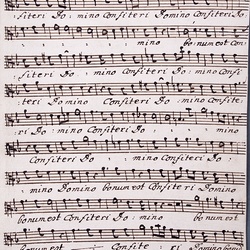 fiteri Do : mino Confiteri Domino Confiteri Do
mino bonum est Con
fiteri Do : mino Confiteri Do : mino Confi
teri Domino Confiteri Do : mino Confite
ri Do : mino Confiteri Do : mino
Confiteri Do : mino
mino Domino bonum est Confiteri Domino
bonum est Confiteri Do : mino bonum est
bonum est Confite ri Domino bonum